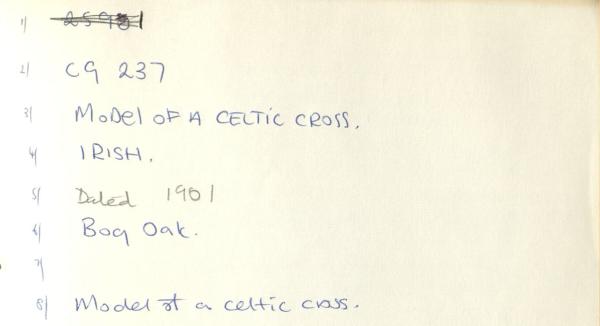 1)
2) CG 237
3) Model OF A CELTIC CROSS.
4) IRISH.
5) Dated 1901
6) Bog Oak.
7)
8) Model of a celtic cross.